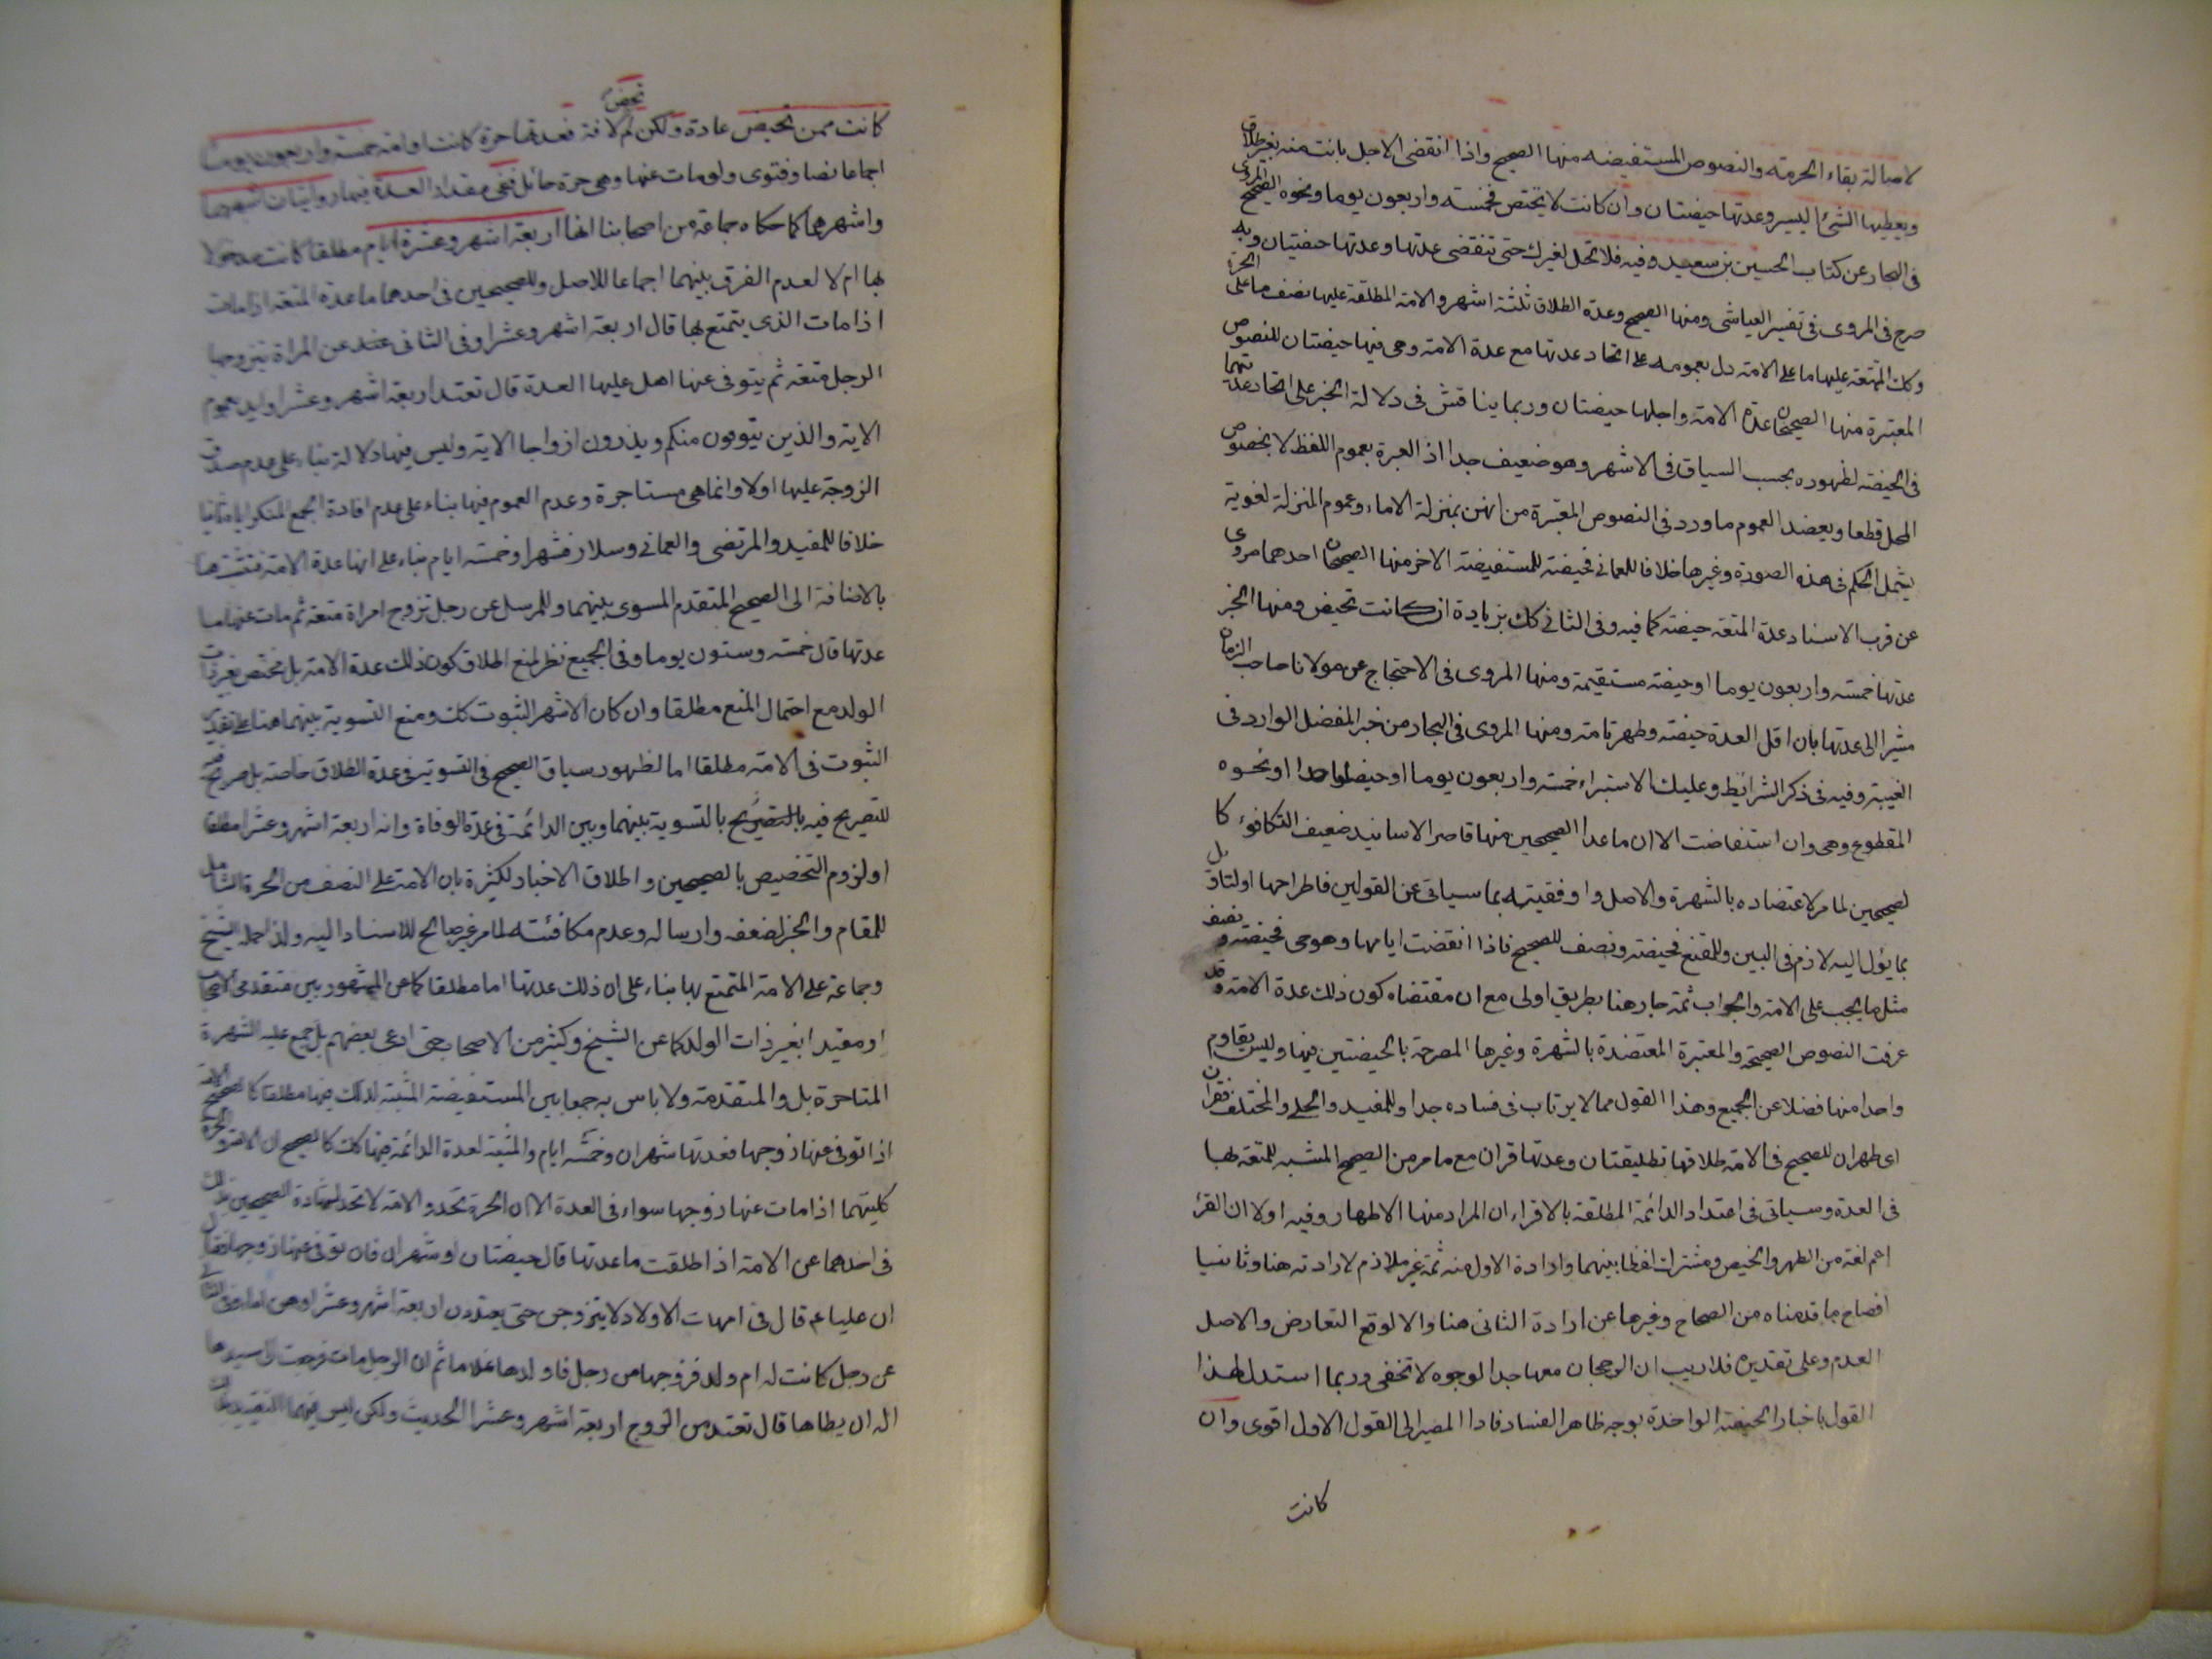 لاصالة بقاء الحرمة والنصوص المستفيضه منها الصحيح واذا انقضى الاجل بانت منه بغير طلاق
ويعطيها الشئ اليسير وعدتها حيضتان وان كانت لا تحيض فخمسة واربعون يوما ونحوه الصحيح المروى
فى البحار عن كتاب الحسين بن سعيد وفيه فلا تحل لغيرك حتى تنقضى عدتها وعدتها حيضتان وبه
صرح فى المروى فى تفسير العياشى ومنها الصحيح وعدة الطلاق ثلثة اشهر والامة المطلقة عليها نصف ما على الحرة
وكك المتعة عليها ما على الامة دل بعمومه على اتحاد عدتها مع عدة الامة وهى فيها حيضتان للنصوص
المعتبرة منها الصحيحان عدة الامة واجلها حيضتان وربما يناقش فى دلالة الخبر على اتحاد عدتهما
فى الحيضة لظهوره بحسب السياق فى الاشهر وهو ضعيف جدا اذ العبرة بعموم اللفظ لا بخصوص
المحل قطعا ويعضد العموم ما ورد فى النصوص المعتبرة من انهن بمنزلة الاماء وعموم المنزلة لغوية
يشمل الحكم فى هذه الصورة وغيرها خلافا للعمانى فحيضة للمستفيضة الاخر منها الصحيحان احدهما مروى
عن قرب الاسناد عدة المتعة حيضة كما فيه وفى الثانى كك بزيادة ان كانت تحيض ومنها الخبر
عدتها خمسة واربعون يوما او حيضة مستقيمة ومنها المروى فى الاحتجاج عن مولانا صاحب الزمان
مشيرا الى عدتها بان اقل العدة حيضة وطهرة تامة ومنها المروى فى البحار من خبر المفضل الوارد فى
الغيبة وفيه فى ذكر الشرائط وعليك الاستبراء خمسة واربعون يوما او حيضا واحدا او نحوه
المقطوع وهى وان استفاضت الا ان ما عدا الصحيحين منها قاصر الاسانيد ضعيف التكافؤ كا
لصحيحين لما مر لاعتضاده بالشهرة والاصل واوفقيته بما سياتى عن القولين فاطراحها او لتاول
بما يؤل اليه لازم فى البين وللمقنع فحيضة ونصف للصحيح فاذا انقضت ايامها وهو حى فحيضة ونصف
مثل ما يجب على الامة والجواب ثمة جار هنا بطريق اولى مع ان مقتضاه كون ذلك عدة الامة وقد
عرفت النصوص الصحيحة والمعتبرة المعتضدة بالشهرة وغيرها المصرحة بالحيضتين فيها وليس يقاوم
واحدا منها فضلا عن الجميع وهذا القول مما لا يرتاب فى فساده جدا وللمفيد والحلى والمختلف فقران
اى طهران للصحيح فى الامة طلاقها تطليقتان وعدتها قران مع ما مر من الصحيح المشبه للمتعة بها
فى العدة وسياتى فى اعتداد الدائمة المطلقة بالاقراء ان المراد منها الاطهار وفيه اولا ان القرء
اعم لغة من الطهر والحيض ومشترك لفظا بينهما وارادة الاول منه ثمة غير ملازم لارادته هنا وثانيا
افصاح ما قدمناه من الصحاح وغيرها عن ارادة الثانى هنا والا لوقع التعارض والاصل
العدم وعلى تقديره فلا ريب ان الرجحان معها جدا لوجوه لا تخفى وربما استدل لهذا
القول باخبار الحيضة الواحدة بوجه ظاهر الفساد فاذا المصير الى القول الاول اقوى وان
كانت
تحيض
كانت ممن تحيض عادة ولكن لم لافة فعدتها حرة كانت او امة خمسة واربعون يوما
اجماعا نصا وفتوى ولو مات عنها وهى حرة حائل ففى مقدار العدة فيها روايتان اشهرهما
واشهرهما كما حكاه جماعة من اصحابنا انها اربعة اشهر وعشرة ايام مطلقا كانت مدخولا
بها ام لا لعدم الفرق بينهما اجماعا للاصل وللصحيحين فى احدهما ما عدة المتعة اذا مات
اذا مات الذى يتمتع بها قال اربعة اشهر وعشرا وفى الثانى عن المراة تتزوجها
الرجل متعة ثم يتوفى عنها هل عليها العدة قال تعتد اربعة اشهر وعشرا ولعموم
الاية والذين يتوفون منكم ويذرون ازواجا الاية وليس فيها دلالة بناء على عدم صدق
الزوجة عليها اولا وانما هى مستاجرة وعدم العموم فيها بناء على عدم افادة الجمع المنكر اياه ثانيا
خلافا للمفيد والمرتضى والعمانى وسلار فشهرا وخمسة ايام بناء على انها عدة الامة فتثبت هنا
بالاضافة الى الصحيح المتقدم المسوى بينهما وللمرسل عن رجل تزوج امراة متعة ثم مات عنها ما
عدتها قال خمسة وستون يوما وفى الجميع نظر لمنع اطلاق كون ذلك عدة الامة بل مختص بغير ذات
الولد مع احتمال المنع مطلقا وان كان الاشهر الثبوت كك ومنع التسوية بينهما هنا على تقدير
الثبوت فى الامة مطلقا اما لظهور سياق الصحيح فى التسوية فى عدة الطلاق خاصة بل صريحه
للتصريح فيه بالتصريح بالتسوية بينهما وبين الدائمة فى عدة الوفاة وانه اربعة اشهر وعشرا مطلقا
او لزوم التخصيص بالصحيحين واطلاق الاخبار لكثيرة بان الامة على النصف من الحرة الشامل
للمقام والخبر لضعفه وارساله وعدم مكافئته لما مر غير صالح للاستناد اليه ولذا حمله الشيخ
وجماعة على الامة المتمتع بها بناء على ان ذلك عدتها اما مطلقا كما عن المشهور بين متقدمى الاصحاب
او مقيدا بغير ذات الولد كما عن الشيخ وكثير من الاصحاب حتى ادعى بعضهم بل جميع عليه الشهرة
المتاخرة بل والمتقدمة ولا باس به جمعا بين المستفيضة المثبتة لذلك فيها مطلقا كالصحيح الامة
اذا توفى عنها زوجها فعدتها شهران وخمسة ايام والمثبتة لعدة الدائمة فيها كك كالصحيح ان الامة والحرة
كلتيهما اذا مات عنها زوجها سواء فى العدة الا ان الحرة تحد والامة لا تحد لشهادة الصحيحين بذلك
فى احدهما عن الامة اذا طلقت ما عدتها قال حيضتان او شهران فان توفى عنها زوجها فقال
ان عليا ع قال فى امهات الاولاد لا يتزوجن حتى يعتددن اربعة اشهر وعشرا وهن اماء وفى الثانى
عن رجل كانت له ام ولد فزوجها من رجل فاولدها غلاما ثم ان الرجل مات فرجعت الى سيدها
اله ان يطاها قال تعتد من الزوج اربعة اشهر وعشرا الحديث ولكن ليس فيهما التقييد